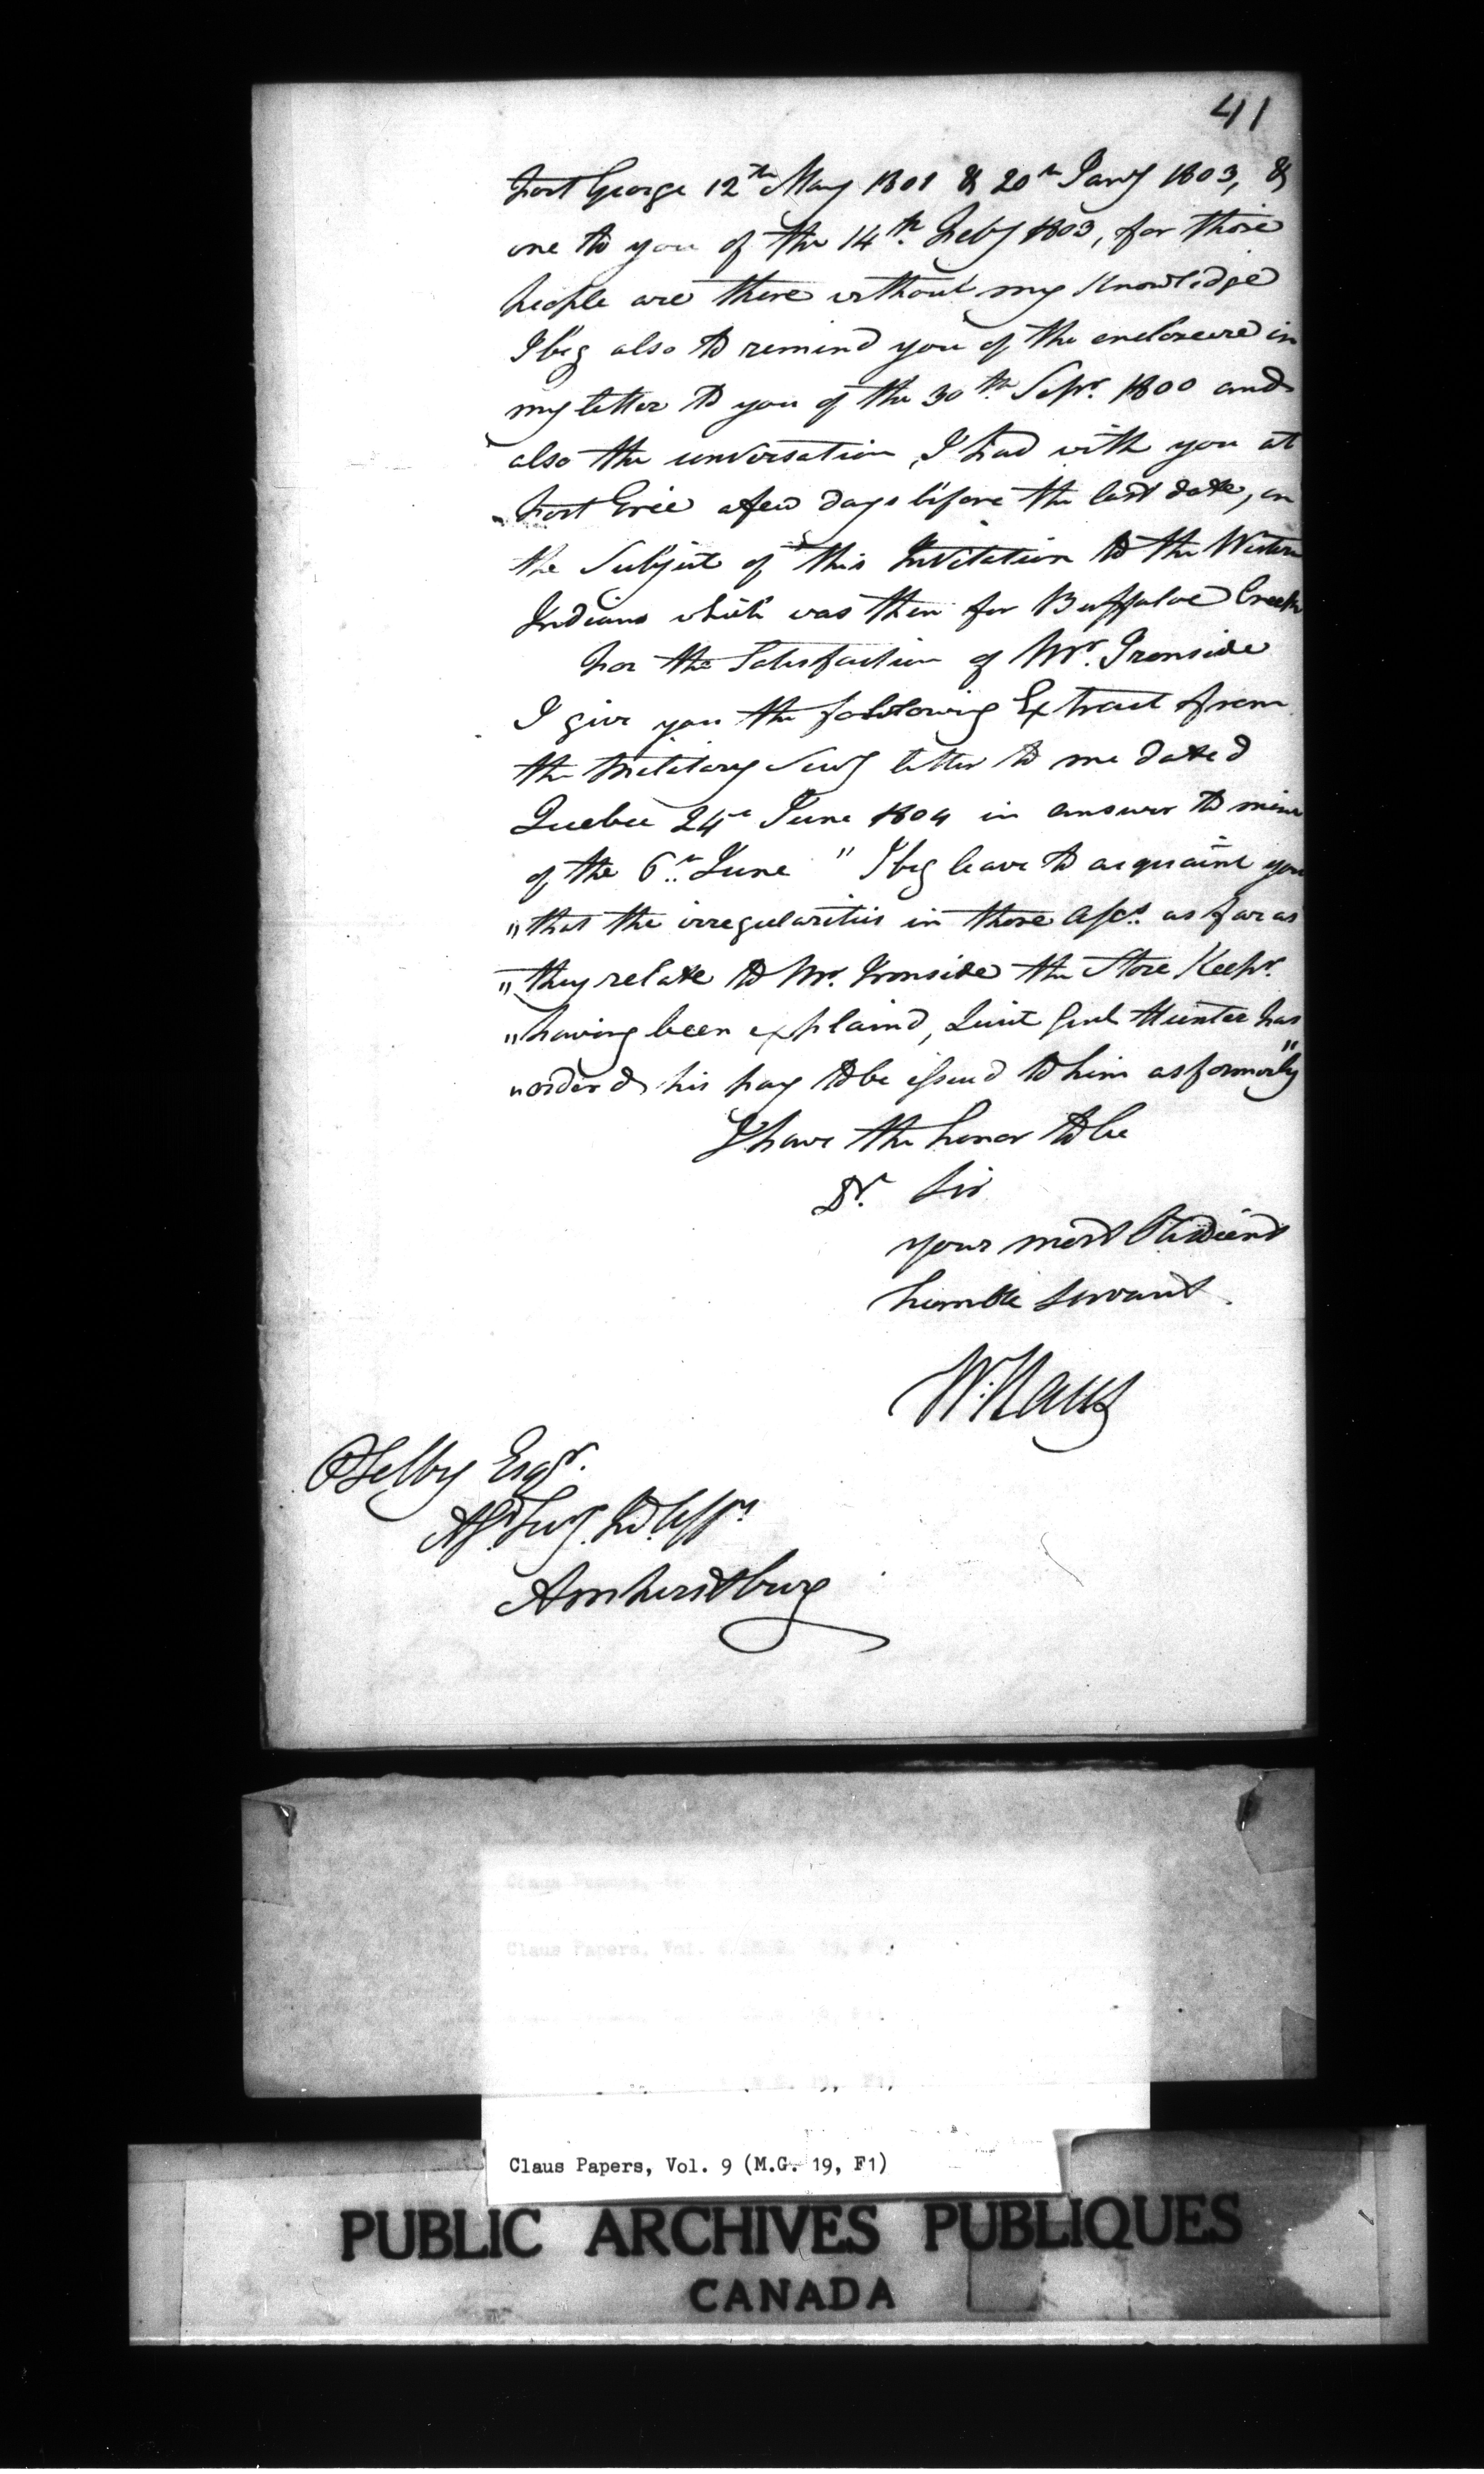 41
Fort George 12th May 1801 & 20th Jany 1803, &
one to you of the 14th Feby 1803, for those
people are there without my Knowledge
I beg also to remind you of the enclosure in
my letter to you of the 30th Sepr. 1800 and
also the conversation, I had with you at
Fort Erie a few days before the last date, on
the Subject of this Invitation to the Western
Indians which was then for Buffaloe Creek
For the Satisfaction of Mr. Ironside
I give you the following Extract from
the Military Secy letter to me dated
Quebec 24th June 1804 in answer to mine
of the 6th June " I beg leave to acquaint you
" that the irregularities in those Accts. as far as
" they relate to Mr. Ironside the Store Keepr.
" having been explaind, Lieut Genl Hunter has
" orderd his pay to be issued to him as formerly"
I have the honor to be
Dr. Sir
your most Obedient
humble Servant.
W: Claus
P Selby Esqr.
Ast. Secy. Ind. Affrs
Amherstburg
Claus Papers, Vol. 9 (M.G. 19, F1)
PUBLIC ARCHIVES PUBLIQUES
CANADA